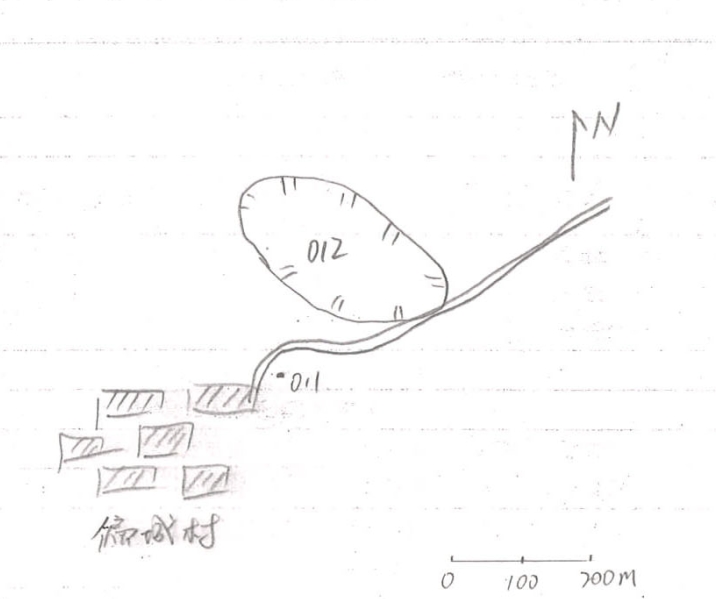 N
012
011
城村
0 100 200M